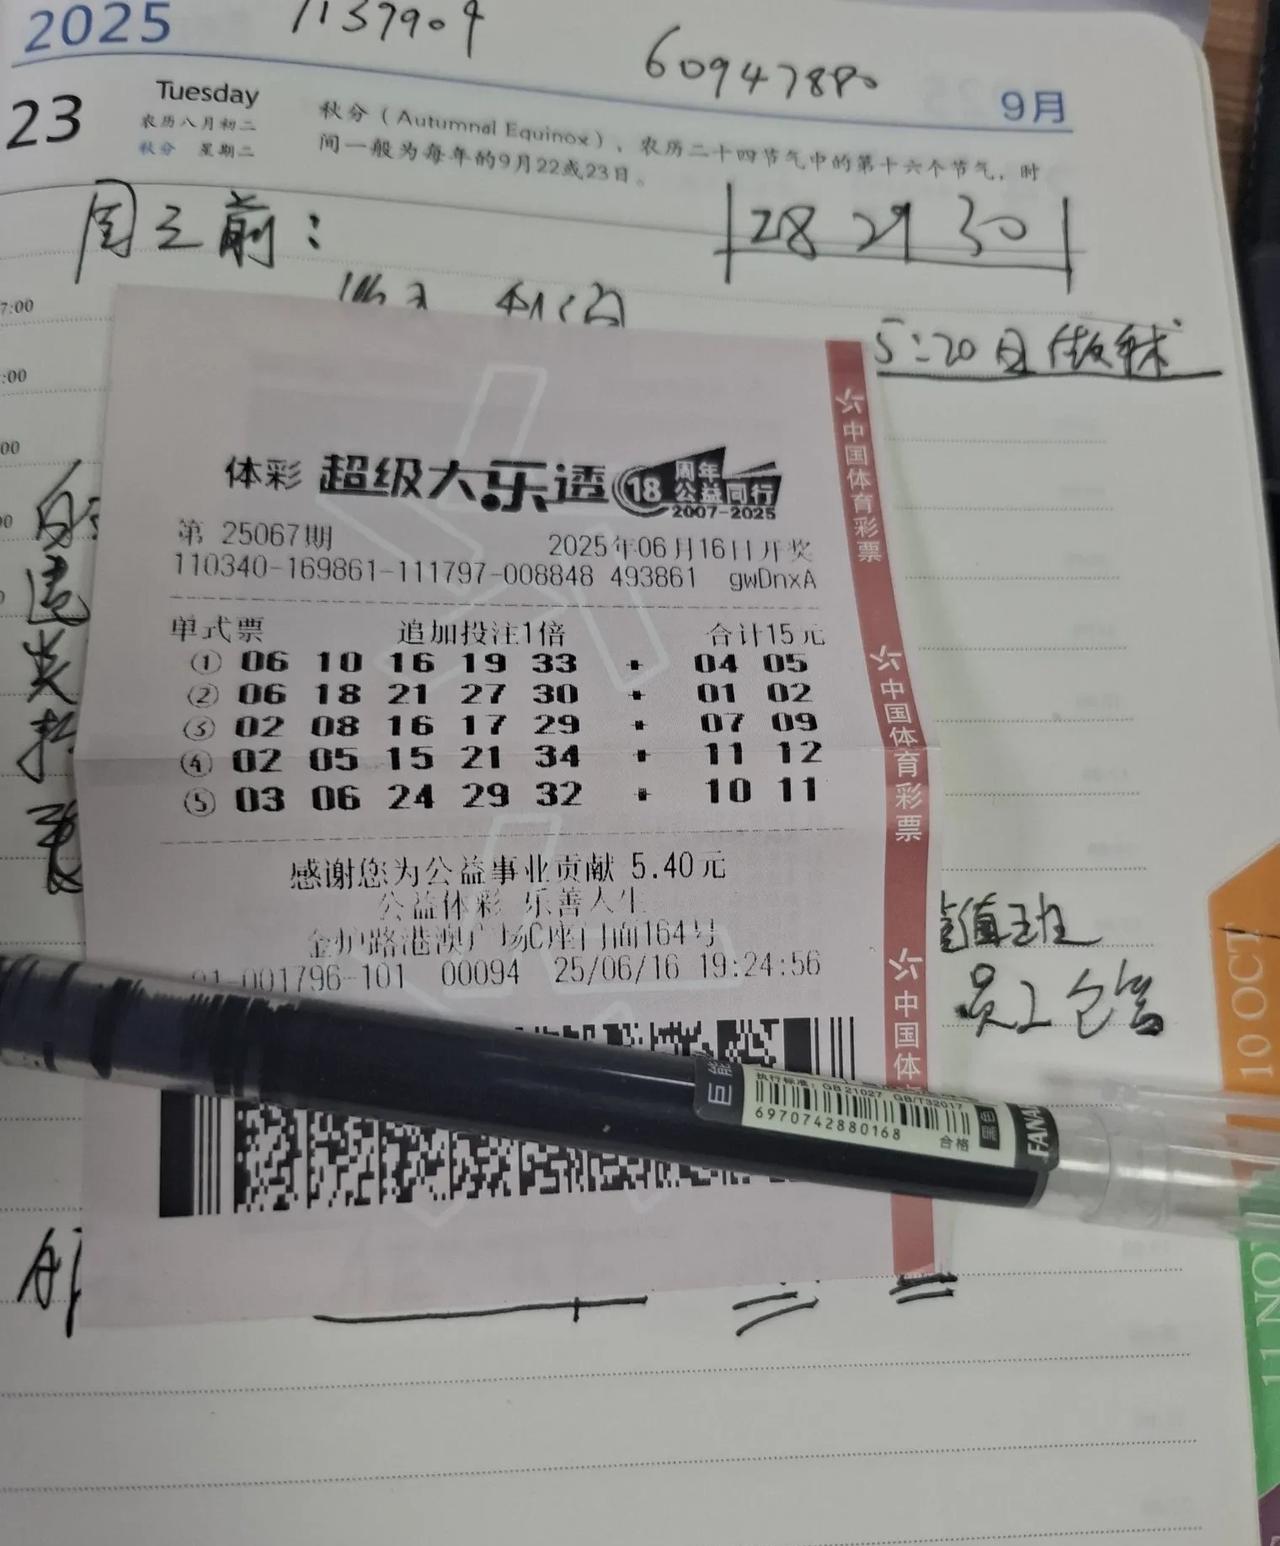 2025
60947880
9月
23
Tuesday
农历八月初二
秋分 星期二
秋分（Autumnal Equinox），农历二十四节气中的第十六个节气，时
间一般为每年的9月22或23日。
周三前：
28 29 30
7:00
:00
00
5:20日做
体彩 超级大乐透 18 周年 公益同行 2007-2025
第 25067期 2025年06月16日开奖
110340-169861-111797-008848 493861 gwDnxA
单式票 追加投注1倍 合计15元
① 06 10 16 19 33 + 04 05
② 06 18 21 27 30 + 01 02
③ 02 08 16 17 29 + 07 09
④ 02 05 15 21 34 + 11 12
⑤ 03 06 24 29 32 + 10 11
感谢您为公益事业贡献 5.40元
公益体彩 乐善人生
金炉路港澳广场C座门面164号
01-001796-101 00094 25/06/16 19:24:56
中国体育彩票
中国体育彩票
中国体
值班
员工包含
巨能
执行标准：GB 21027 GB/T32017
6970742880168
合格
黑色
10 OCT
11 NO